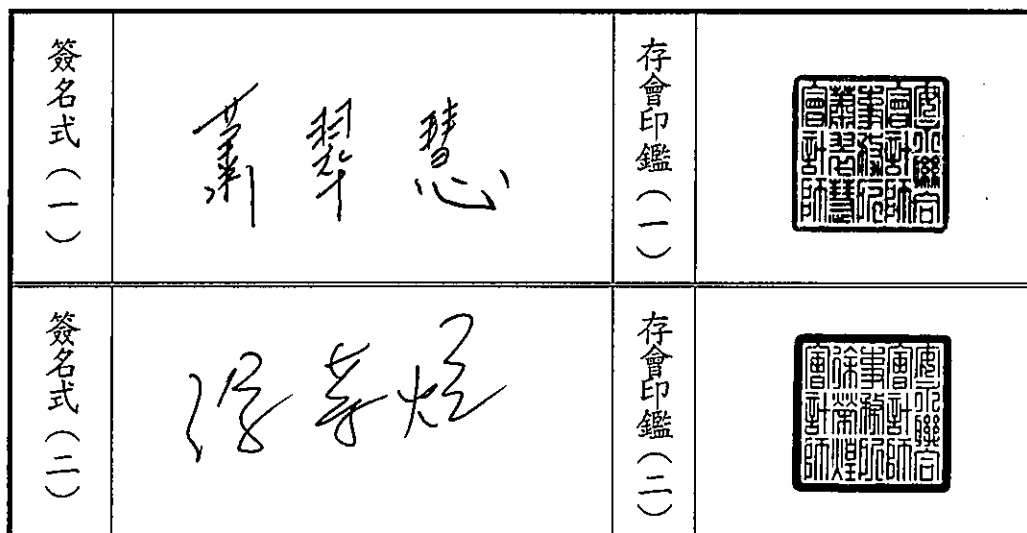 簽名式(一)
蕭翠慧
存會印鑑(一)
安永聯合
會計師
事務所
蕭翠慧
會計師
簽名式(二)
徐榮煌
存會印鑑(二)
安永聯合
會計師
事務所
徐榮煌
會計師